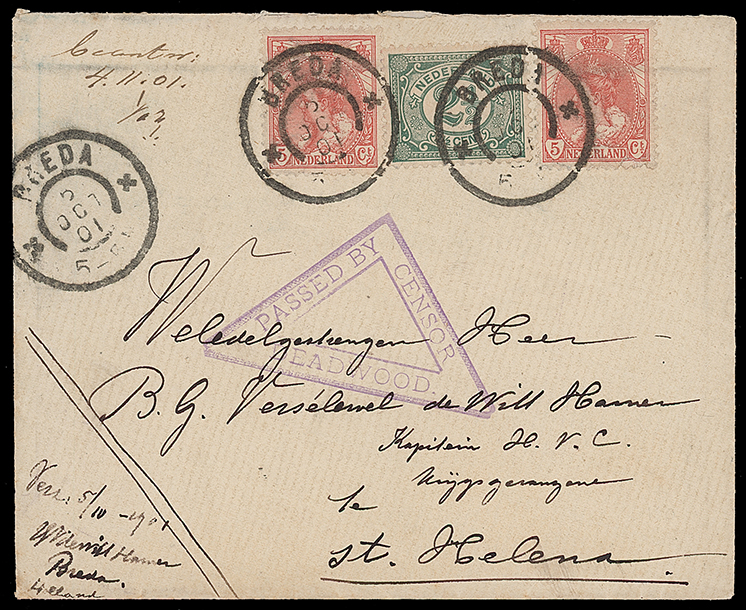 4.11.01.
BREDA
5 OCT 01
BREDA
OCT 01
5
BREDA
01
5
5 NEDERLAND Ct
NEDER
2½ CENT
5 NEDERLAND Ct
PASSED BY CENSOR
DEADWOOD.
Weledelgestrengen Heer
B. G. Verselewel de Witt Hamer
Kapitein H. V. C.
Krijgsgevangene
te
St. Helena
Verz. 5/10 - 1901
de Witt Hamer
Breda.
Holland